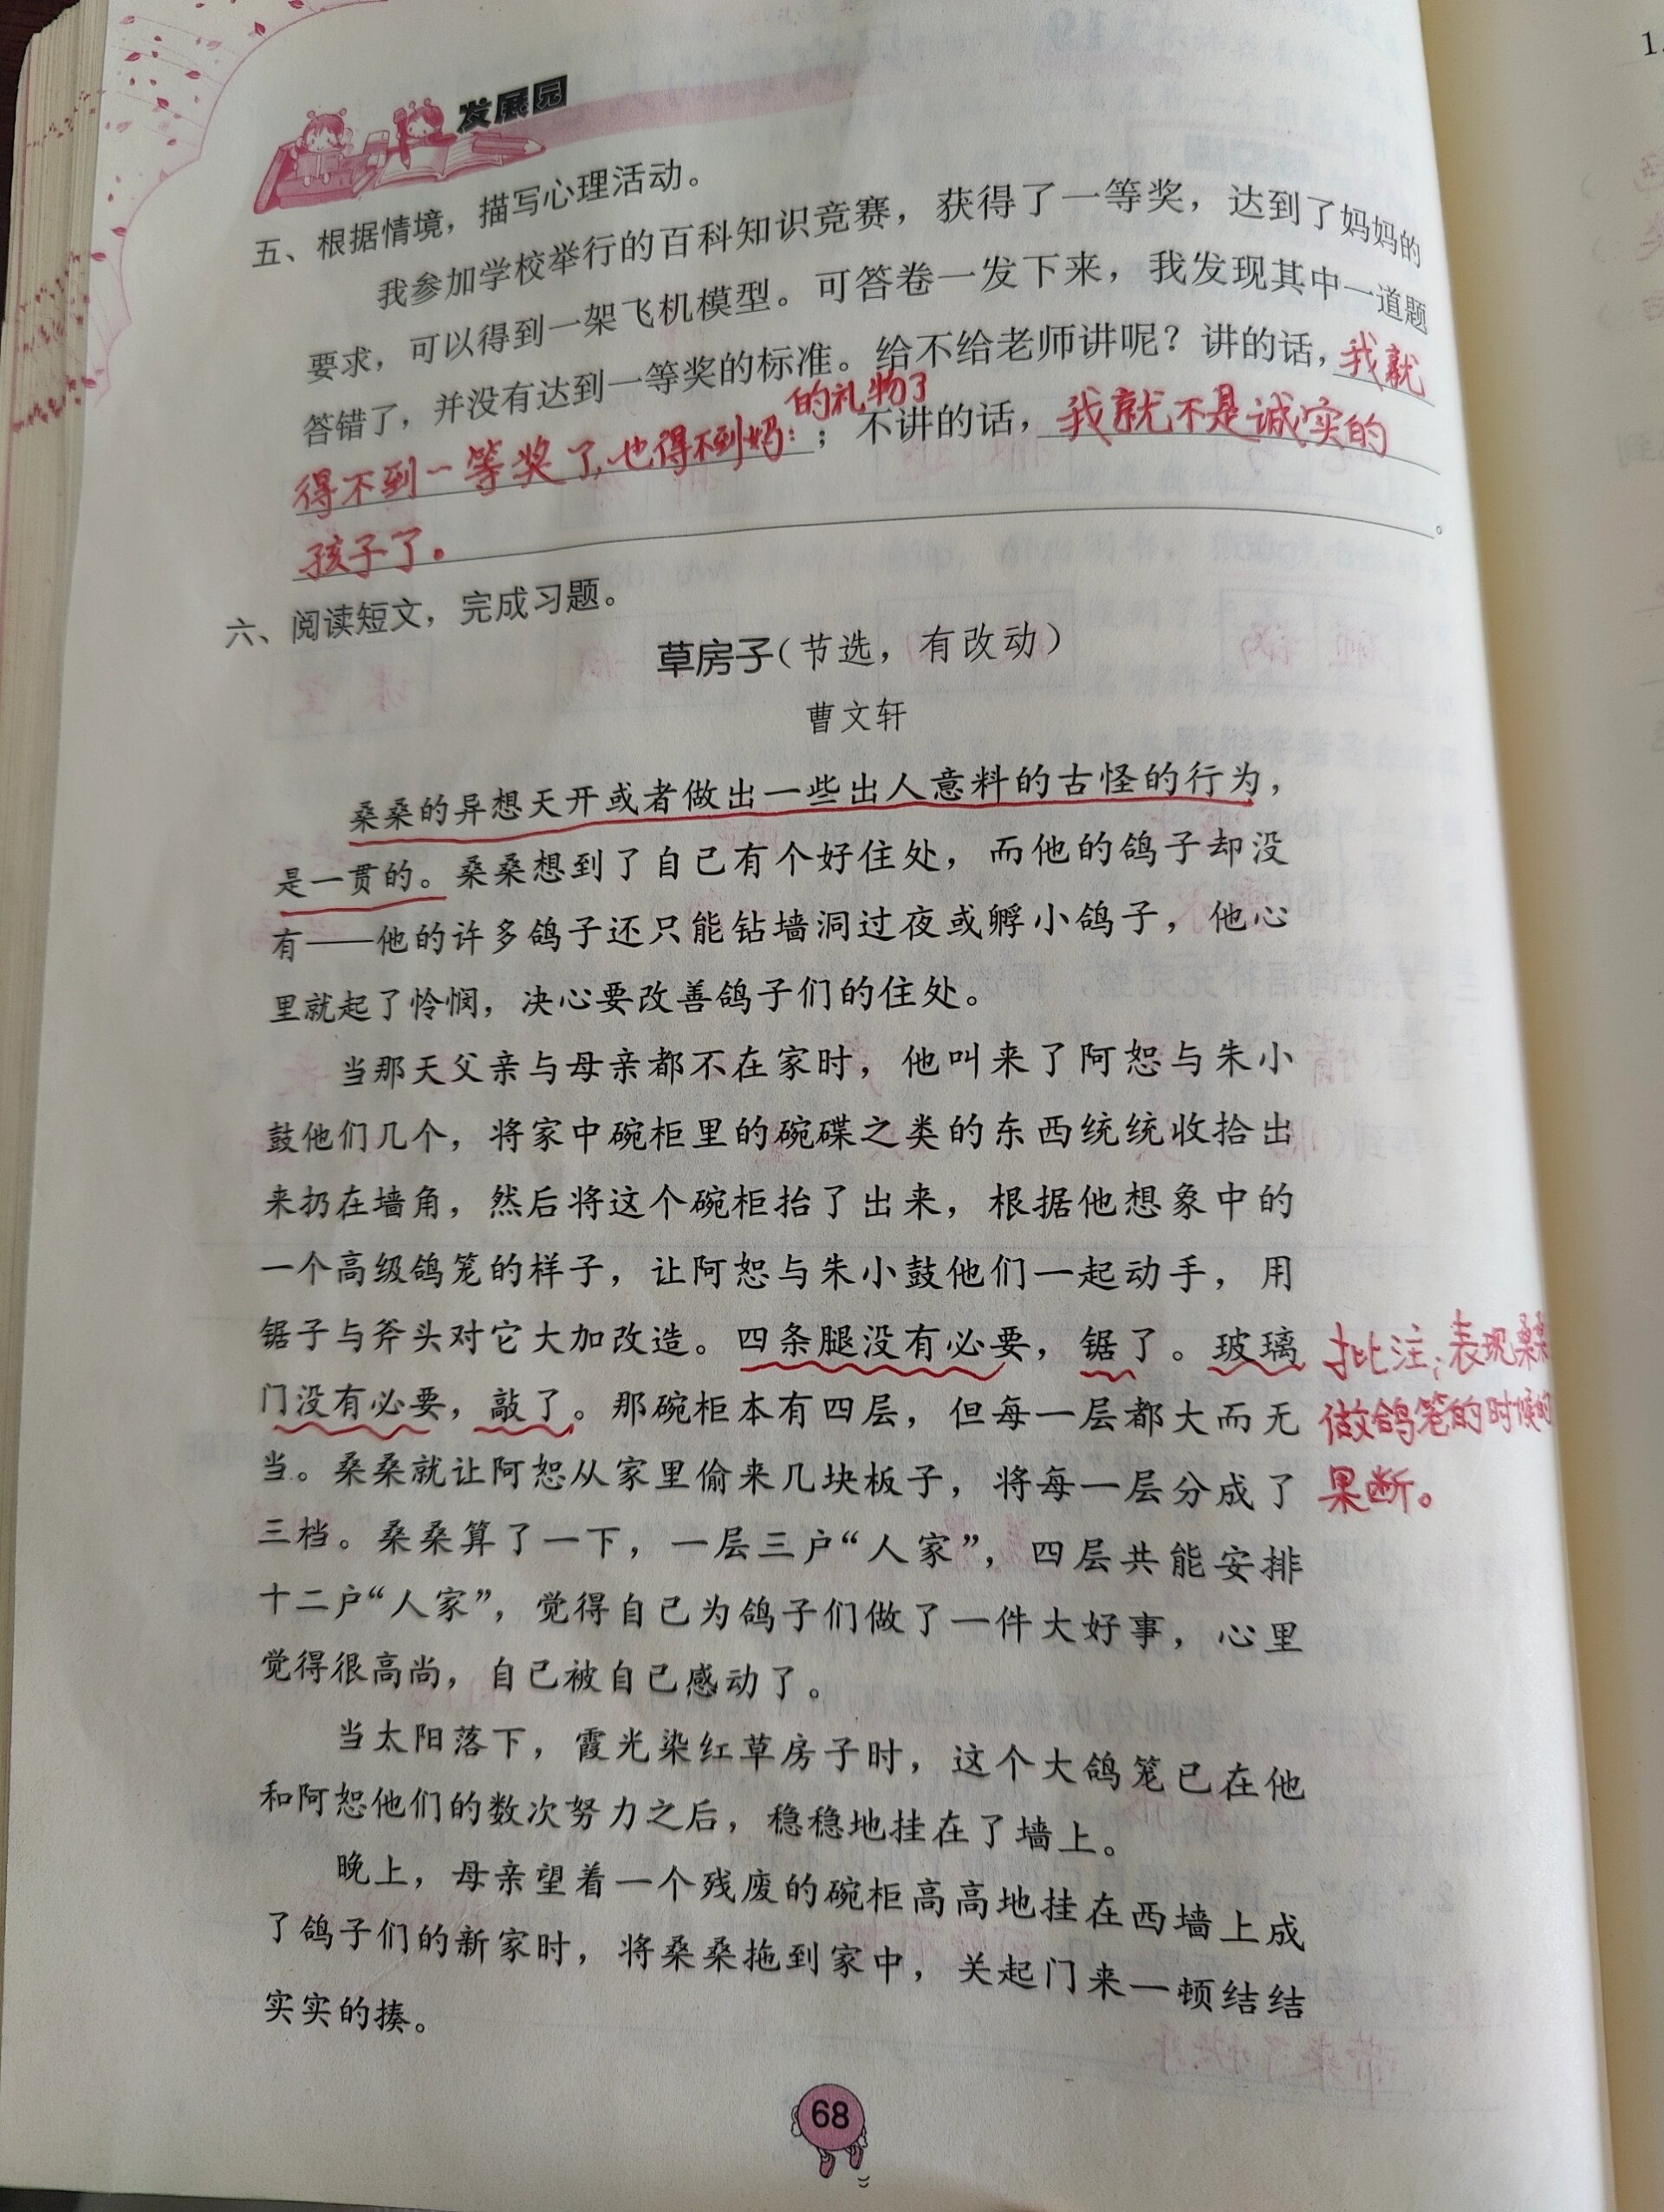 发展园
五、根据情境，描写心理活动。
我参加学校举行的百科知识竞赛，获得了一等奖，达到了妈妈的
要求，可以得到一架飞机模型。可答卷一发下来，我发现其中一道题
答错了，并没有达到一等奖的标准。给不给老师讲呢？讲的话，我就
的礼物了
得不到一等奖了，也得不到妈：；不讲的话，我就不是诚实的
孩子了。。
六、阅读短文，完成习题。
草房子（节选，有改动）
曹文轩
桑桑的异想天开或者做出一些出人意料的古怪的行为，
是一贯的。桑桑想到了自己有个好住处，而他的鸽子却没
有——他的许多鸽子还只能钻墙洞过夜或孵小鸽子，他心
里就起了怜悯，决心要改善鸽子们的住处。
当那天父亲与母亲都不在家时，他叫来了阿恕与朱小
鼓他们几个，将家中碗柜里的碗碟之类的东西统统收拾出
来扔在墙角，然后将这个碗柜抬了出来，根据他想象中的
一个高级鸽笼的样子，让阿恕与朱小鼓他们一起动手，用
锯子与斧头对它大加改造。四条腿没有必要，锯了。玻璃
门没有必要，敲了。那碗柜本有四层，但每一层都大而无
当。桑桑就让阿恕从家里偷来几块板子，将每一层分成了
三档。桑桑算了一下，一层三户“人家”，四层共能安排
十二户“人家”，觉得自己为鸽子们做了一件大好事，心里
觉得很高尚，自己被自己感动了。
批注：表现桑桑
做鸽笼的时候的
果断。
当太阳落下，霞光染红草房子时，这个大鸽笼已在他
和阿恕他们的数次努力之后，稳稳地挂在了墙上。
晚上，母亲望着一个残废的碗柜高高地挂在西墙上成
了鸽子们的新家时，将桑桑拖到家中，关起门来一顿结结
实实的揍。
68
1.